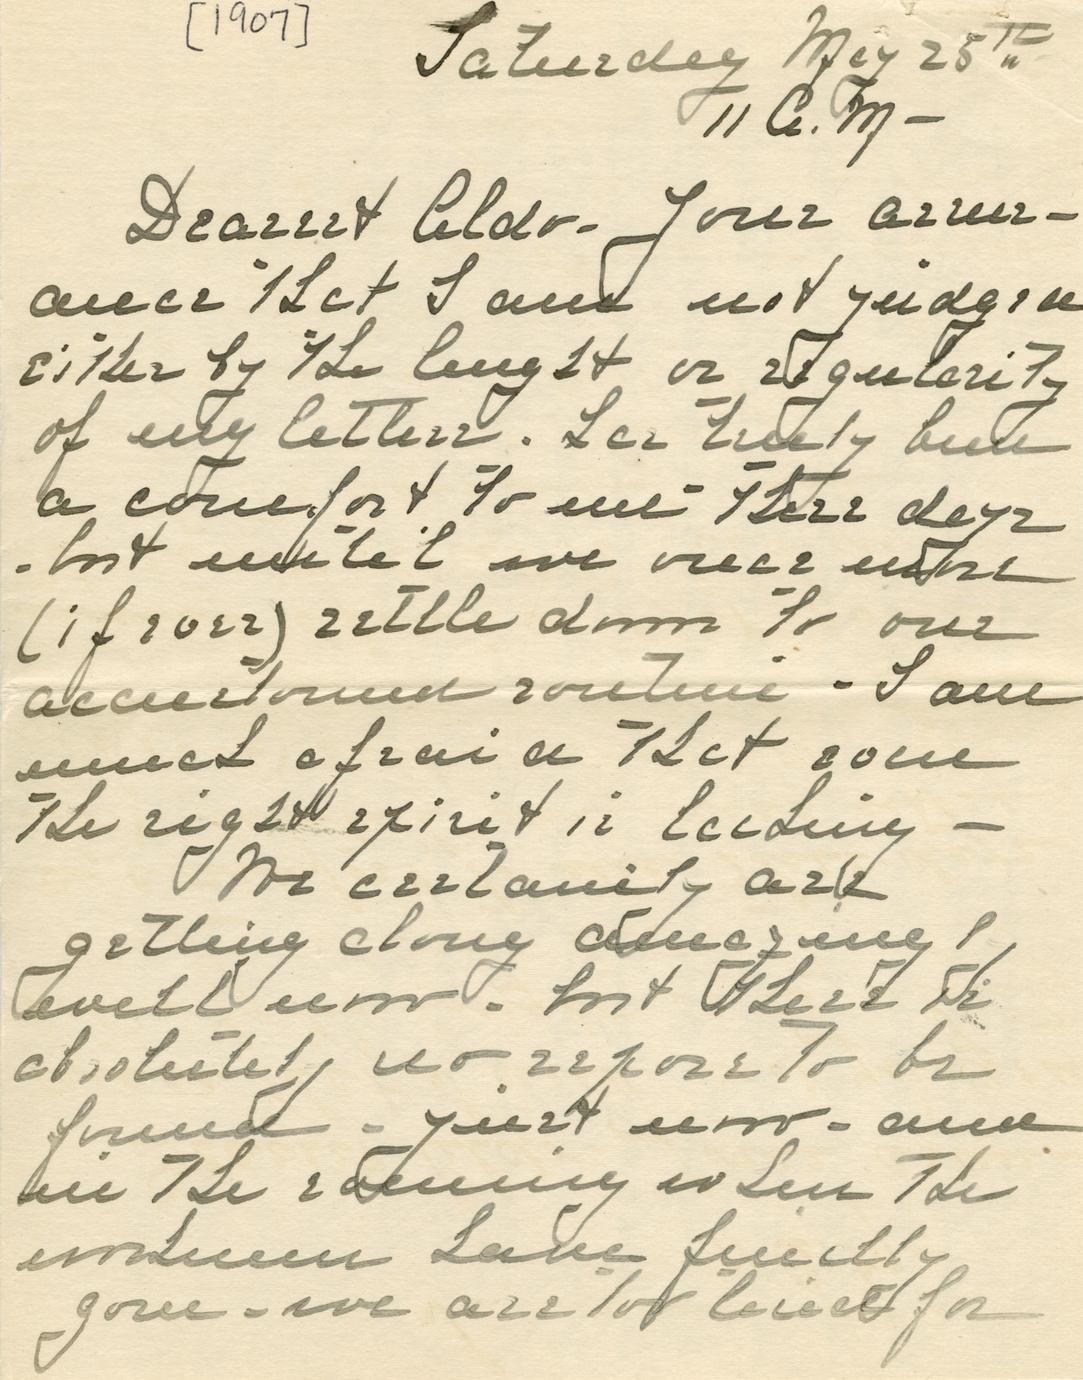 [1907]
Saturday May 25th
11 A.M -
Dearest Aldo - Your assur-
ance that I am not judged
either by the lenght or regularity
of my letters. has truly been
a comfort to me these days
- but until we once more
(if ever) settle down to our
accustomed routine - I am
much afraid that some
the right spirit is lacking -
We certainly are
getting along amazingly
well now - but there is
absolutely no repose to be
found - just now - and
in the evening when the
workmen have finally
gone - we are too tired for